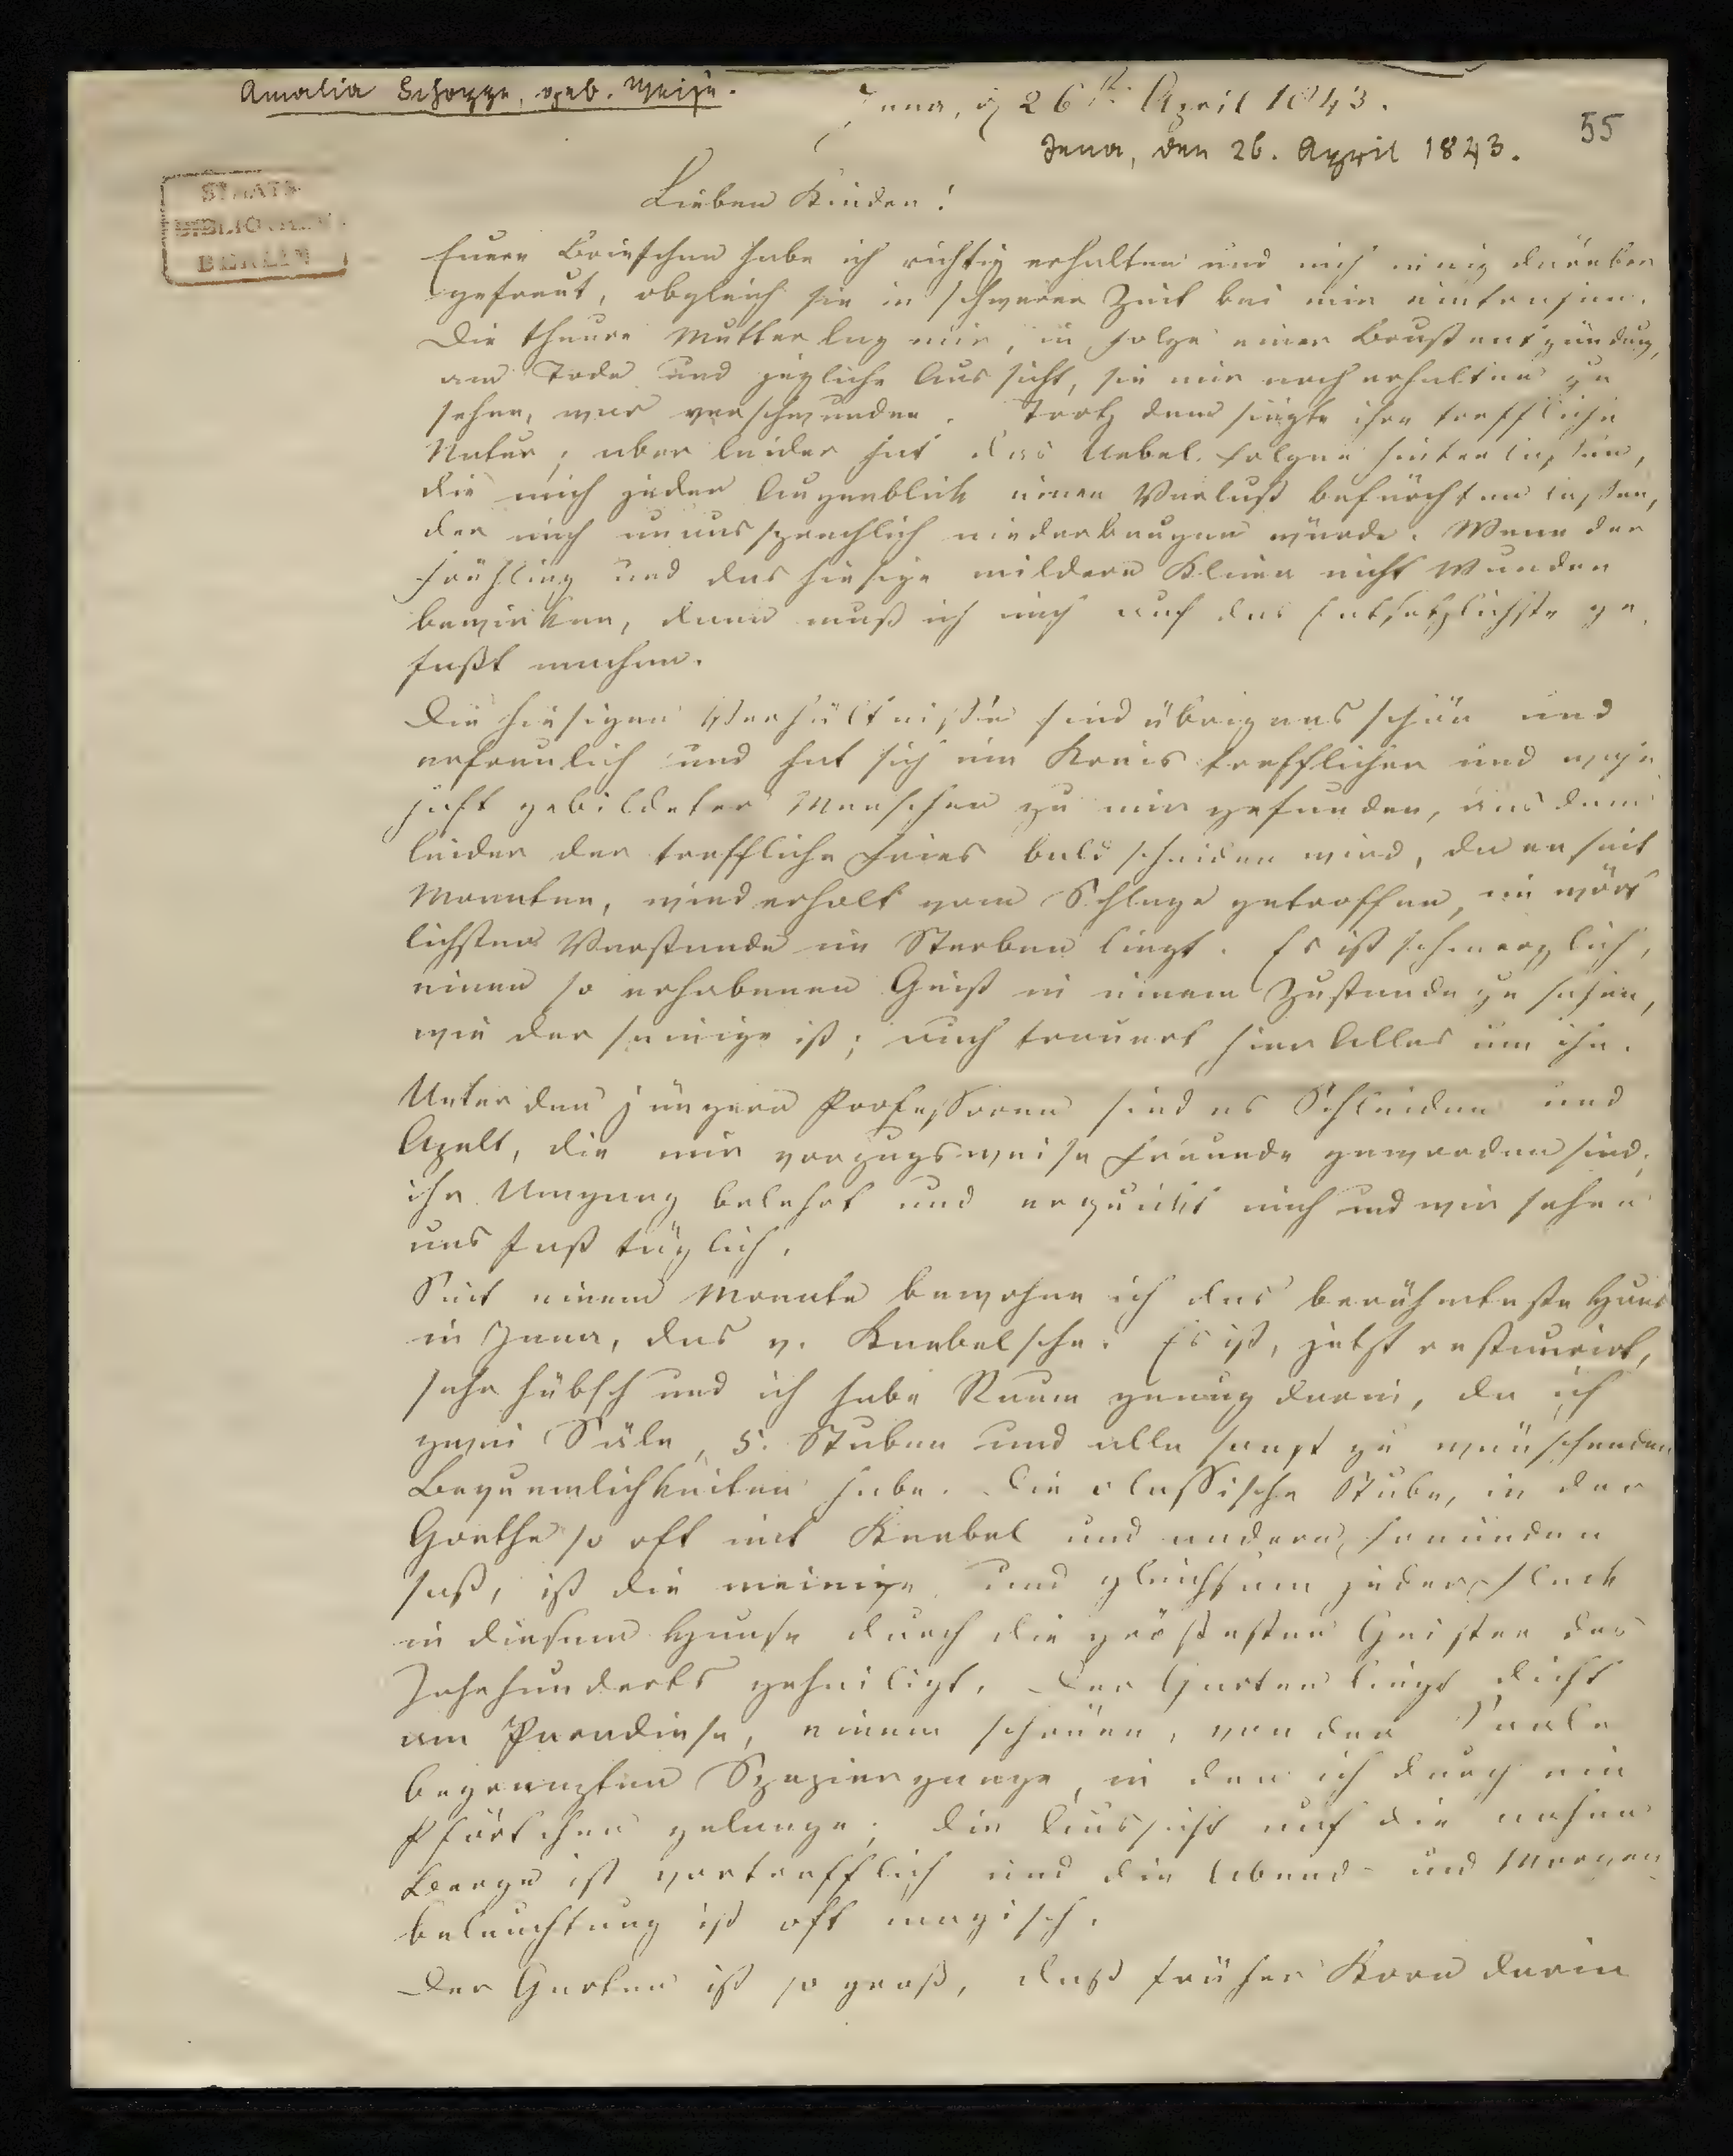 Amalia Schoppe, geb. Weise.
Jena, d 26st. April 1843.
55
Jena, den 26. April 1843.
STAATS-
BIBLIOTHEK
BERLIN
Lieben Kinder!
Euere Briefchen habe ich richtig erhalten und mich innig darüber
gefreut, obgleich sie in schwerer Zeit bei mir eintrafen.
Die theure Mutter lag mir, in Folge einer Brustentzündung,
am Tode und jegliche Aussicht, sie mir noch erhalten zu
sehen, war verschwunden. Trotz dem siegte ihre treffliche
Natur; aber leider hat das Uebel Folgen hinterlassen,
die mich jeden Augenblick einen Verlust befürchten lassen,
der mich unaussprechlich niederbeugen würde. Wenn der
Frühling und das hiesige mildere Klima nicht Wunder
bewirken, dann muß ich mich auf das Entsetzlichste ge-
faßt machen.
Die hiesigen Verhältniße sind übrigens schön und
erfreulich und hat sich ein Kreis trefflicher und
gebildeter Menschen zu mir gefunden, aus dem
leider der treffliche Fries bald scheiden wird, da er seit
Monaten, wiederholt vom Schlage getroffen, im wört
lichsten Verstande im Sterben liegt. Es ist schmerzlich,
einen so erhabenen Geist in einem Zustande zu sehen,
wie der seinige ist; auch trauert hier Alles um ihn.
Unter den jüngern Professoren sind es Schleiden und
Apelt, die mir vorzugsweise Freunde geworden sind;
ihr Umgang belehrt und erquickt mich und wir sehen
uns fast täglich.
Seit einem Monate bewohne ich das berühmteste Haus
in Jena, das v. Knebelsche. Es ist, jetzt restaurirt,
sehr hübsch und ich habe Raum genug darin, da ich
zwei Säle, 5. Stuben und alle sonst zu wünschenden
Bequemlichkeiten habe. Die classische Stube, in der
Goethe so oft mit Knebel und andern Freunden
saß, ist die meinige und gleichsam jeder Fleck
in diesem Hause durch die größesten Geister des
Jahrhunderts geheiligt. Der Garten liegt dicht
am Paradiese, einem schönen, von der Saale
begrenzten Spaziergange, in den ich durch ein
Pförtchen gelange; die Aussicht auf die nahen
Berge ist vortrefflich und die Abend- und Morgen-
beleuchtung ist oft magisch.
Der Garten ist so groß, daß früher Korn darin